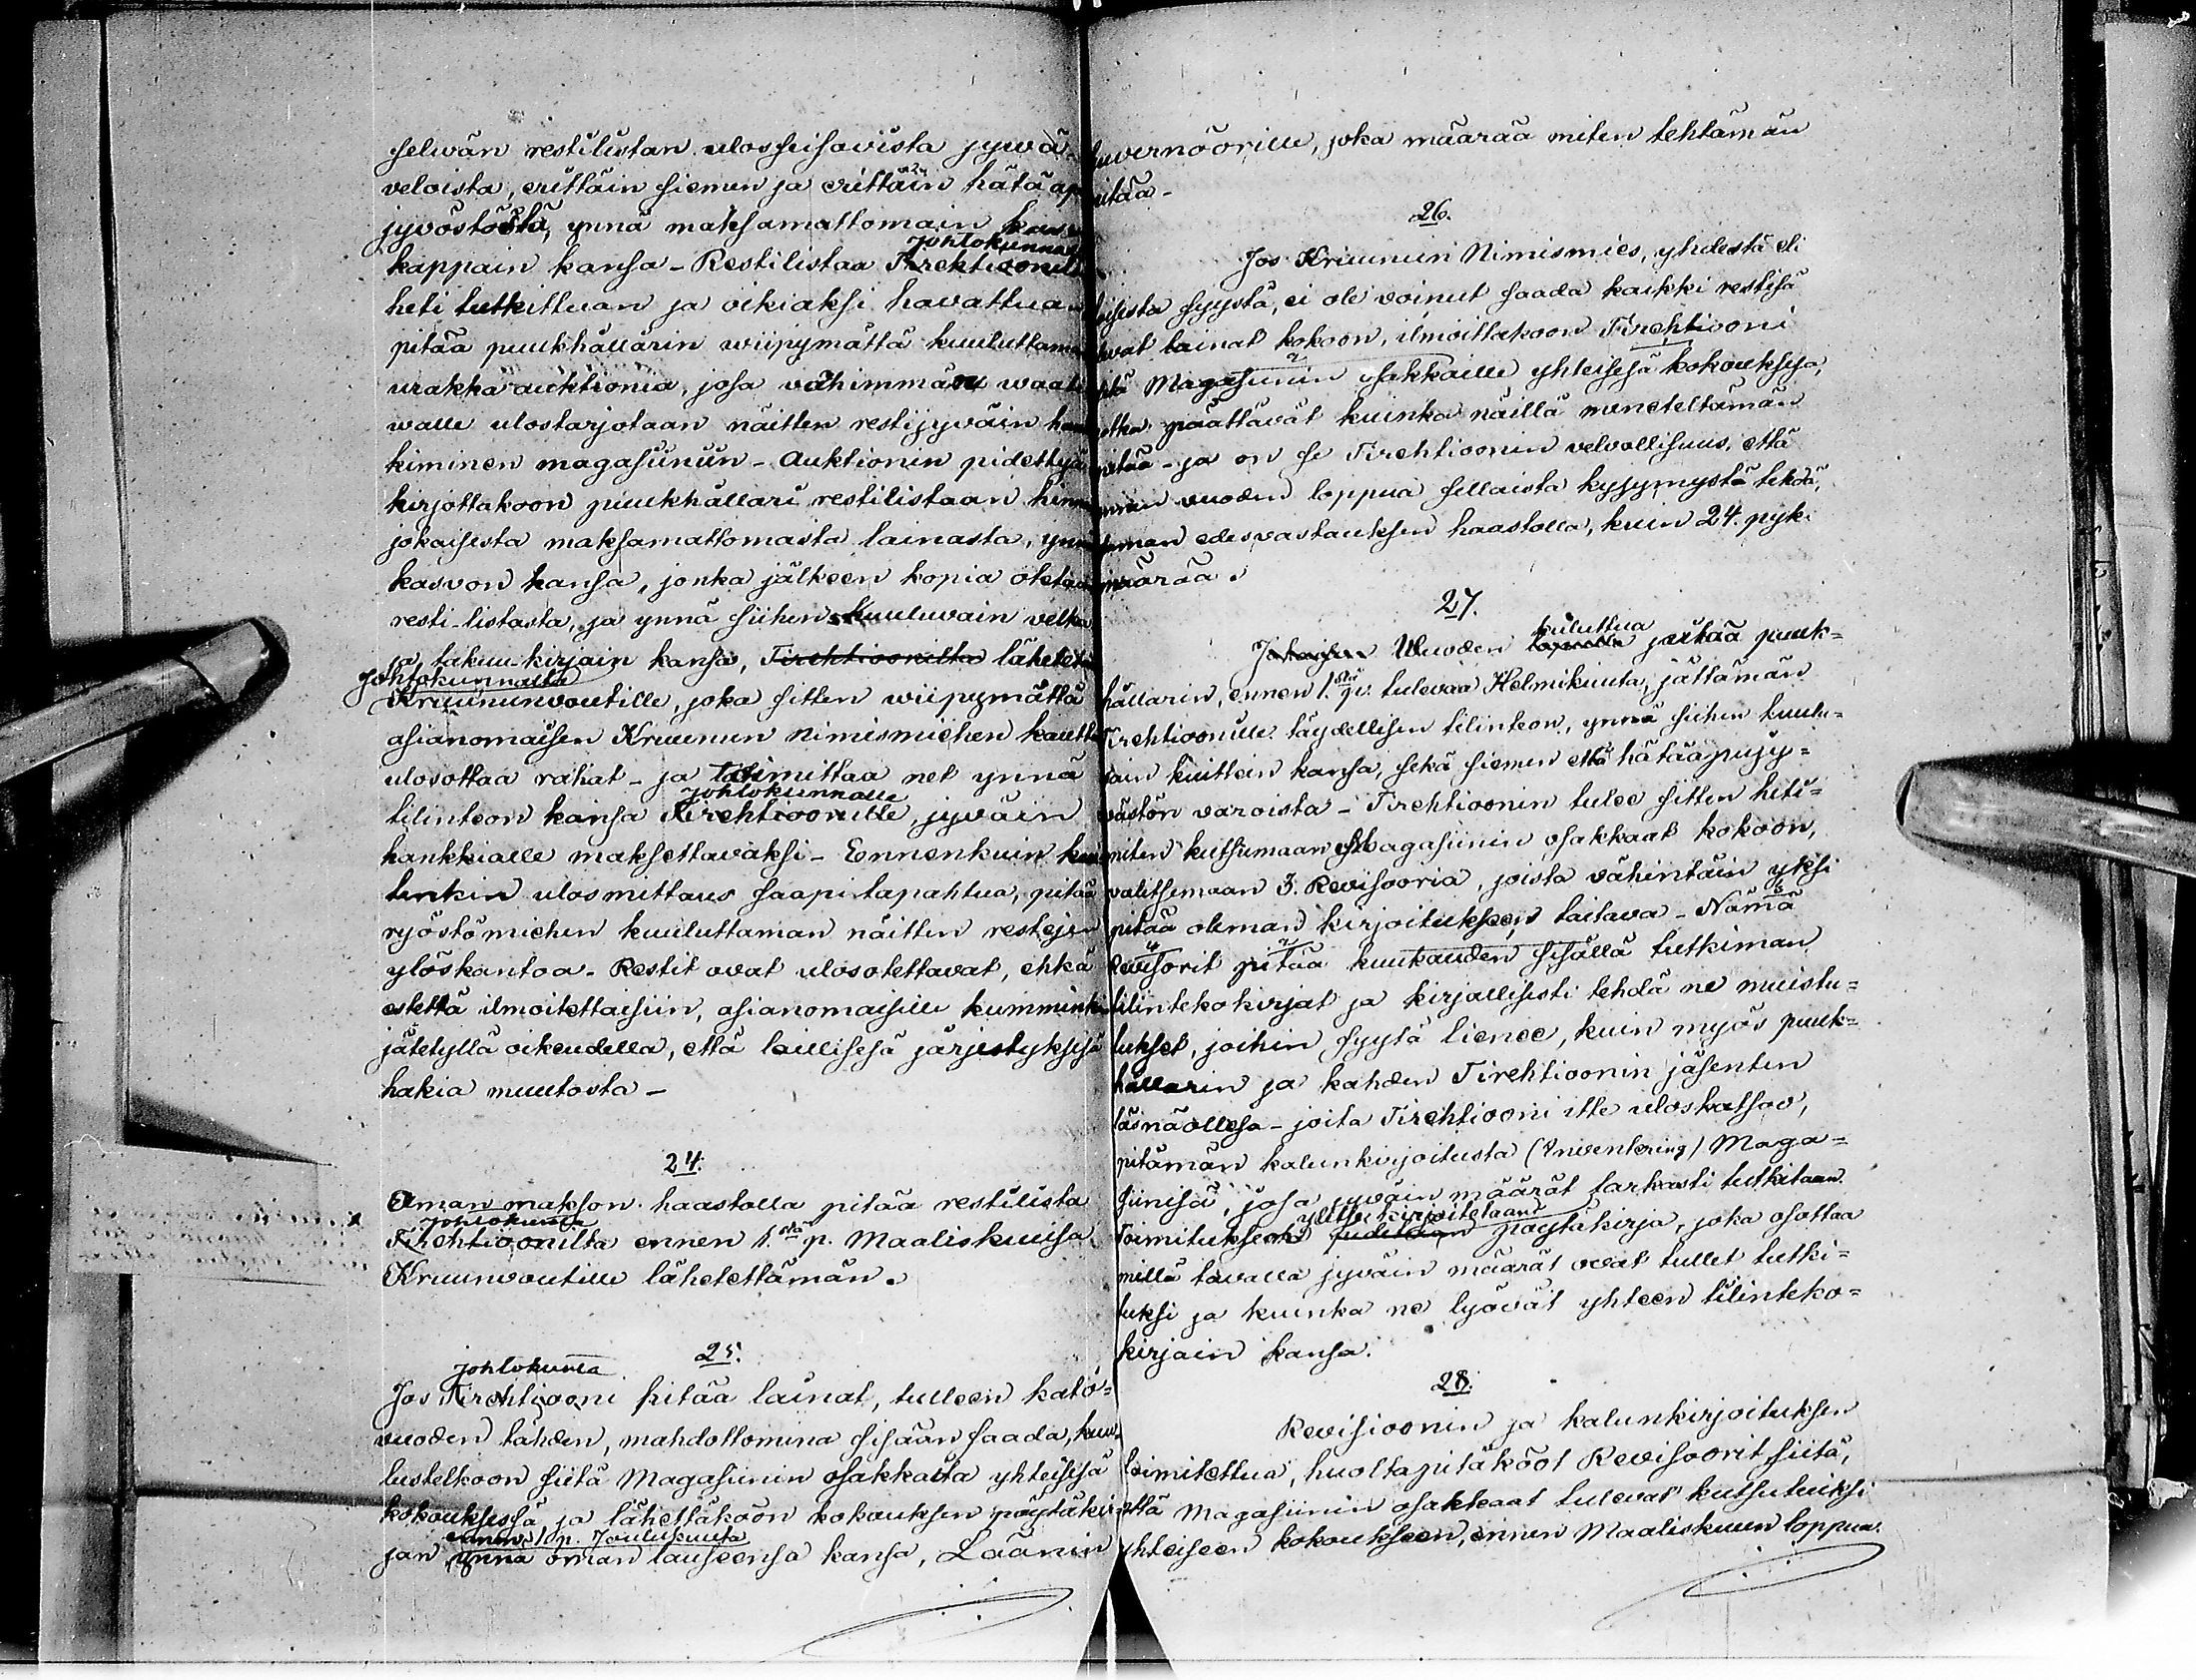 selwän restilistan ulosseisovista jywä-
veloista, erittäin siemen ja erittäin hätäap
jyvöstöstä, ynnä maksamattomain kasvu
Johtokunnan
kappain kansa - Restilistaa Tirektioonil
heti tutkittuan ja oikiaksi havattuan
pitää puukhållarin wiipymättä kuuluttama
urakka auktionia, josa vähimmän waati
walle ulostarjotaan näitten restijyväin han
kiminen magasiiniin - Auktionin pidettyä
kirjottakoon puukhållari restilistaan hinna
jokaisesta maksamattomasta lainasta, ynnä
kasvon kansa, jonka jälkeen kopia otetaan
resti-listasta, ja ynnä siihen kuuluwain velka
ja takuu-kirjain kansa, Tirehtioonilta lähetetä
Johtokunnalta
Kruununvoutille, joka sitten wiipymättä
asianomaisen Kruunun nimismiehen kautta
ulosottaa rahat - ja toimittaa net ynnä
Johtokunnalle
tilinteon kansa Tirehtioonille, jyväin
hankkialle maksettavaksi - Ennenkuin kui
tenkin ulosmittaus saapi tapahtua, pitää
ryöstömiehen kuuluttaman näitten restejen
ylöskantoa. Restit ovat ulosotettavat, ehkä
estettä ilmoitettaisiin, asianomaisille kumminki
jätetyllä oikeudella, että laillisesä järjestyksesä
hakia muutosta -
24.
Oman makson haastolla pitää restilista
Johtokunta
Tirehtioonilta ennen 1.stä p. Maaliskuusa
Kruunvoutille lähetettämän.
25.
Johtokunta
Jos Tirehtiooni pitää lainat, tulleen kato-
vuoden tähden, mahdottomina sisään saada, kuu-
lustelkoon siitä Magasiinin osakkailta yhteisesä
kokouksesa ja lähettäköön kokouksen pöytäkir
ennen 1 p. Joulukuuta
jan ynnä oman lauseensa kansa, Läänin
kuvernöörille, joka määrää miten tehtämän
pitää -
26.
Jos Kruunun Nimismies, yhdestä eli
toisesta syystä, ei ole voinut saada kaikki restisä
olevat lainat kokoon, ilmoittakoon Tirehtiooni
sitä Magasiinin osakkaille yhteisesä kokouksesa,
jotka päättävät kuinka näillä meneteltämän
pitää - ja on se Tirehtioonin velvollisuus, että
ennen vuoden loppua sellaista kysymystä tehdä,
saman edesvastauksen haastolla, kuin 24. pyk.
määrää.
27.
kuluttua
Jokaisen Wuoden lopulla pitää puuk-
hållarin, ennen 1.stä p. tulevaa Helmikuuta, jättämän
Tirehtioonille täydellisen tilinteon, ynnä siihen kuulu-
vain kuittein kansa, sekä siemen että hätäapujy-
västön varoista - Tirehtioonin tulee sitten heti-
miten kutsumaan Magasiinin osakkaat kokoon,
valitsemaan 3. Revisooria, joista vähintäin yksi
pitää oleman kirjoitukseen taitava - Nämä
Revisorit pitää kuukauden sisällä tutkiman
tilintekokirjat ja kirjallisesti tehdä ne muistu-
tukset, joihin syytä lienee, kuin myös puuk-
hållarin ja kahden Tirehtioonin jäsenten
läsnäollesa - joita Tirehtiooni itte uloskatsoo,
pitämän kalunkirjoitusta (Inventering) Maga-
siinisä, josa jyväin määrät tarkasti tutkitaan.
ylitse kirjoitetaan
Toimituksen pöytäkirja, joka osottaa
millä tavalla jyväin määrät ovat tullet tutki-
tuksi ja kuinka ne lyövät yhteen tilinteko-
kirjain kansa.
28.
Revisioonin ja kalunkirjoituksen
toimitettua, huolta pitäkööt Revisoorit siitä,
että Magasiinin osakkaat tulevat kutsutuiksi
yhteiseen kokoukseen, ennen Maaliskuun loppua.